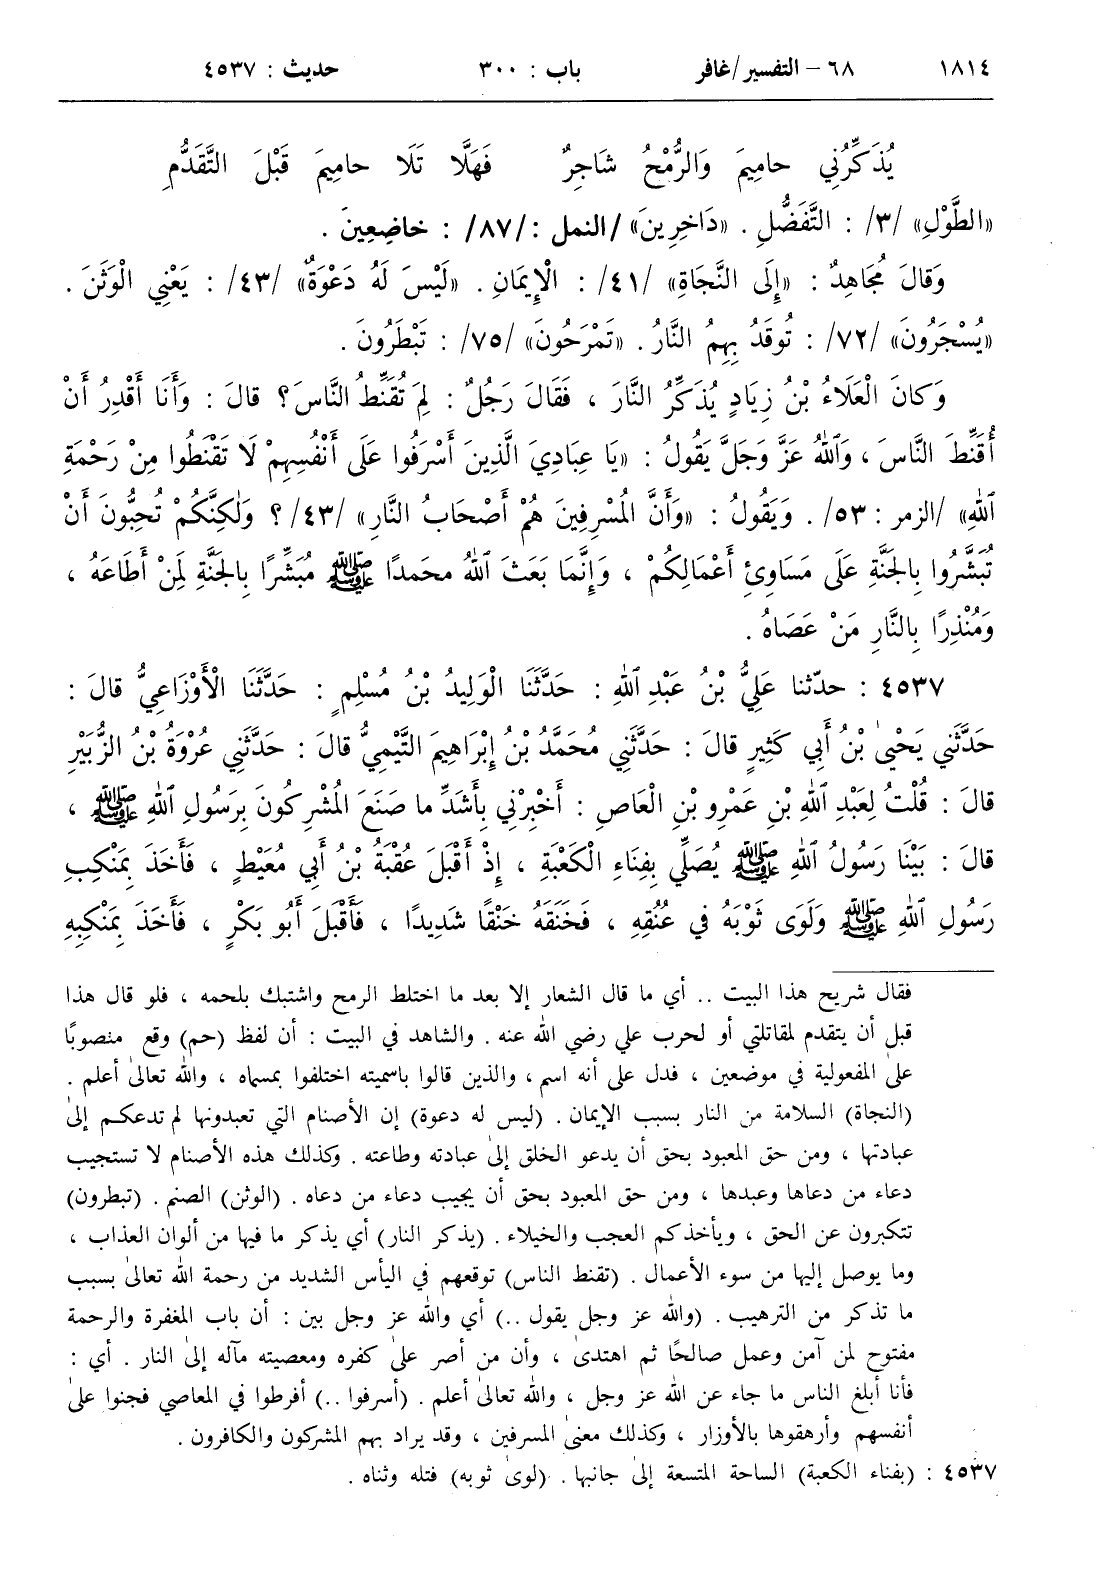 ١٨١٤ ٦٨ - التفسير/غافر باب : ٣٠٠ حديث : ٤٥٣٧
يُذَكِّرُنِي حامِيمَ وَالرُّمْحُ شاجِرٌ فَهَلَّا تَلَا حامِيمَ قَبْلَ التَّقَدُّمِ
«الطَّوْلِ» /٣/ : التَّفَضُّلِ . «دَاخِرِينَ» /النمل : /٨٧/ : خاضِعِينَ .
وَقالَ مُجَاهِدٌ : «إِلَى النَّجَاةِ» /٤١/ : الْإِيمَانِ . «لَيْسَ لَهُ دَعْوَةٌ» /٤٣/ : يَعْنِي الْوَثَنَ .
«يُسْجَرُونَ» /٧٢/ : تُوقَدُ بِهِمُ النَّارُ . «تَمْرَحُونَ» /٧٥/ : تَبْطَرُونَ .
وَكانَ الْعَلَاءُ بْنُ زِيَادٍ يُذَكِّرُ النَّارَ ، فَقَالَ رَجُلٌ : لِمَ تُقَنِّطُ النَّاسَ؟ قالَ : وَأَنَا أَقْدِرُ أَنْ
أُقَنِّطَ النَّاسَ ، وَٱللهُ عَزَّ وَجَلَّ يَقُولُ : «يَا عِبَادِيَ الَّذِينَ أَسْرَفُوا عَلَى أَنْفُسِهِمْ لَا تَقْنَطُوا مِنْ رَحْمَةِ
ٱللهِ» /الزمر : ٥٣/ . وَيَقُولُ : «وَأَنَّ المُسْرِفِينَ هُمْ أَصْحَابُ النَّارِ» /٤٣/ ؟ وَلٰكِنَّكُمْ تُحِبُّونَ أَنْ
تُبَشَّرُوا بِالجَنَّةِ عَلَى مَسَاوِئِ أَعْمَالِكُمْ ، وَإِنَّمَا بَعَثَ ٱللهُ محمدًا ﷺ مُبَشِّرًا بِالجَنَّةِ لِمَنْ أَطَاعَهُ ،
وَمُنْذِرًا بِالنَّارِ مَنْ عَصَاهُ .
٤٥٣٧ : حدّثنا عَلِيُّ بْنُ عَبْدِ ٱللهِ : حَدَّثَنَا الْوَلِيدُ بْنُ مُسْلِمٍ : حَدَّثَنَا الْأَوْزَاعِيُّ قالَ :
حَدَّثَنِي يَحْيىٰ بْنُ أَبِي كَثِيرٍ قالَ : حَدَّثَنِي مُحَمَّدُ بْنُ إِبْرَاهِيمَ التَّيْمِيُّ قالَ : حَدَّثَنِي عُرْوَةُ بْنُ الزُّبَيْرِ
قالَ : قُلْتُ لِعَبْدِ ٱللهِ بْنِ عَمْرِو بْنِ الْعَاصِ : أَخْبِرْنِي بِأَشَدِّ ما صَنَعَ المُشْرِكُونَ بِرَسُولِ ٱللهِ ﷺ ،
قالَ : بَيْنَا رَسُولُ ٱللهِ ﷺ يُصَلِّي بِفِنَاءِ الْكَعْبَةِ ، إِذْ أَقْبَلَ عُقْبَةُ بْنُ أَبِي مُعَيْطٍ ، فَأَخَذَ بِمَنْكِبِ
رَسُولِ ٱللهِ ﷺ وَلَوَى ثَوْبَهُ فِي عُنُقِهِ ، فَخَنَقَهُ خَنْقًا شَدِيدًا ، فَأَقْبَلَ أَبُو بَكْرٍ ، فَأَخَذَ بِمَنْكِبِهِ
فقال شريح هذا البيت .. أي ما قال الشعار إلا بعد ما اختلط الرمح واشتبك بلحمه ، فلو قال هذا
قبل أن يتقدم لمقاتلتي أو لحرب علي رضي الله عنه . والشاهد في البيت : أن لفظ (حم) وقع منصوبًا
علىٰ المفعولية في موضعين ، فدل علىٰ أنه اسم ، والذين قالوا باسميته اختلفوا بمسماه ، والله تعالىٰ أعلم .
(النجاة) السلامة من النار بسبب الإيمان . (ليس له دعوة) إن الأصنام التي تعبدونها لم تدعكم إلىٰ
عبادتها ، ومن حق المعبود بحق أن يدعو الخلق إلىٰ عبادته وطاعته . وكذلك هذه الأصنام لا تستجيب
دعاء من دعاها وعبدها ، ومن حق المعبود بحق أن يجيب دعاء من دعاه . (الوثن) الصنم . (تبطرون)
تتكبرون عن الحق ، ويأخذكم العجب والخيلاء . (يذكر النار) أي يذكر ما فيها من ألوان العذاب ،
وما يوصل إليها من سوء الأعمال . (تقنط الناس) توقعهم في اليأس الشديد من رحمة الله تعالىٰ بسبب
ما تذكر من الترهيب . (والله عز وجل يقول ..) أي والله عز وجل بين : أن باب المغفرة والرحمة
مفتوح لمن آمن وعمل صالحًا ثم اهتدىٰ ، وأن من أصر علىٰ كفره ومعصيته مآله إلىٰ النار . أي :
فأنا أبلغ الناس ما جاء عن الله عز وجل ، والله تعالىٰ أعلم . (أسرفوا ..) أفرطوا في المعاصي فجنوا علىٰ
أنفسهم وأرهقوها بالأوزار ، وكذلك معنىٰ المسرفين ، وقد يراد بهم المشركون والكافرون .
٤٥٣٧ : (بفناء الكعبة) الساحة المتسعة إلىٰ جانبها . (لوىٰ ثوبه) فتله وثناه .